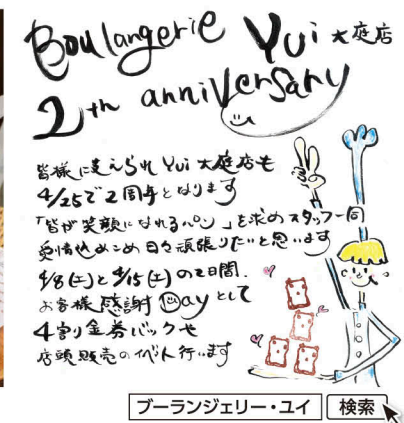 Boulangerie Yui 大庭店
2th anniversary
皆様に支えられ Yui 大庭店も
4/25で2周年となります
「皆が笑顔になれるパン」を求めスタッフ一同
愛情込めこめ日々頑張りたいと思います
4/8(土)と4/15(土)の2日間.
お客様感謝Dayとして
4割り金券バックや
店頭販売のイベント行います
ブーランジェリー・ユイ 検索